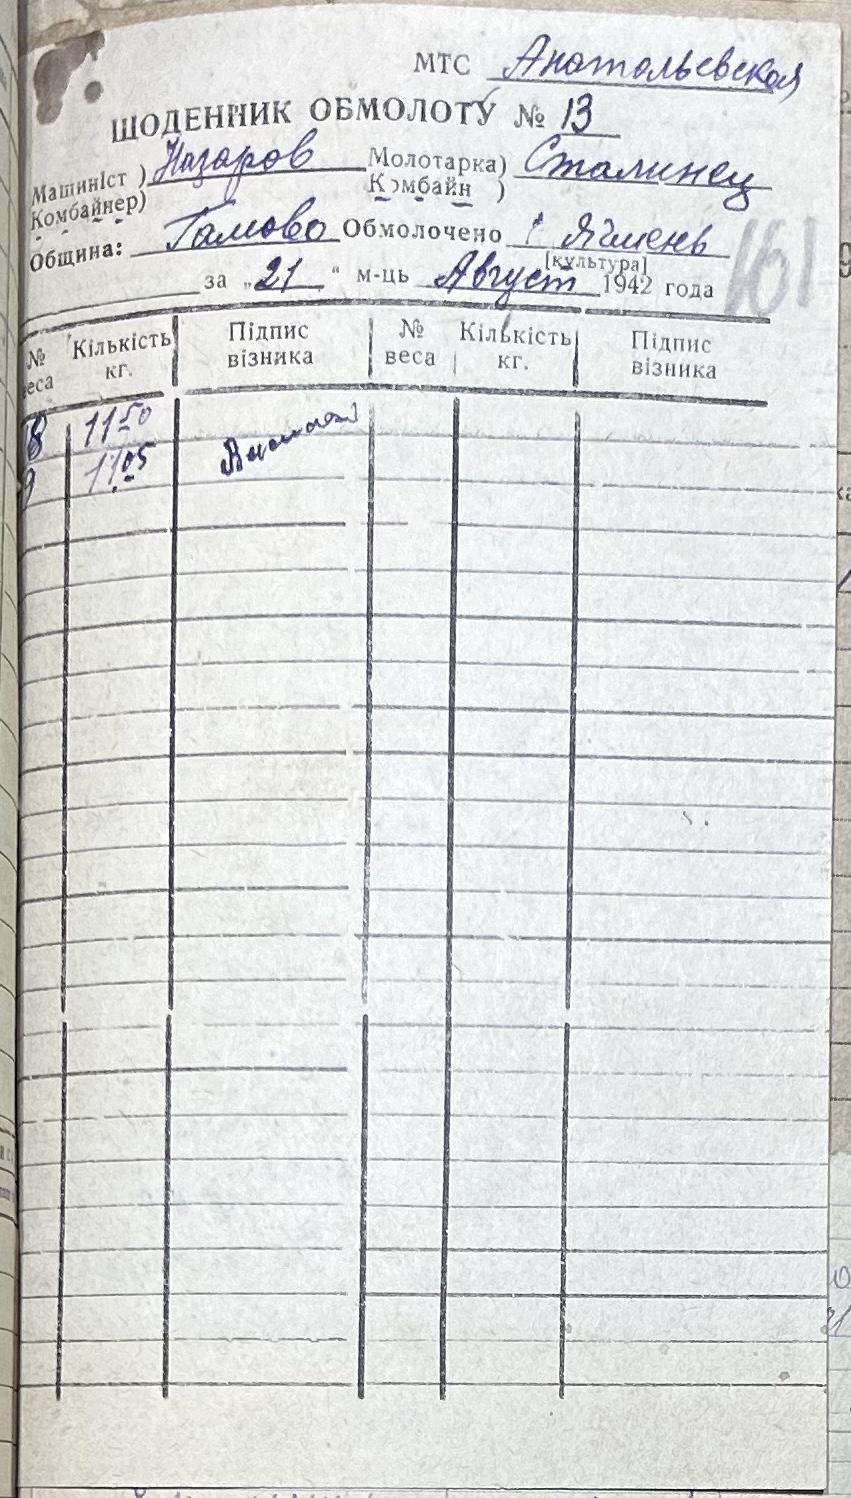 МТС Анатольевская
ЩОДЕННИК ОБМОЛОТУ № 13
Машиніст ) Назаров Молотарка) Сталинец
Комбайнер) Комбайн )
Община: Гамово Обмолочено Ячмень
[культура]
за „21“ м-ць Август 1942 года
161
№ веса Кількість кг. Підпис візника № веса Кількість кг. Підпис візника
8 1150
9 1105